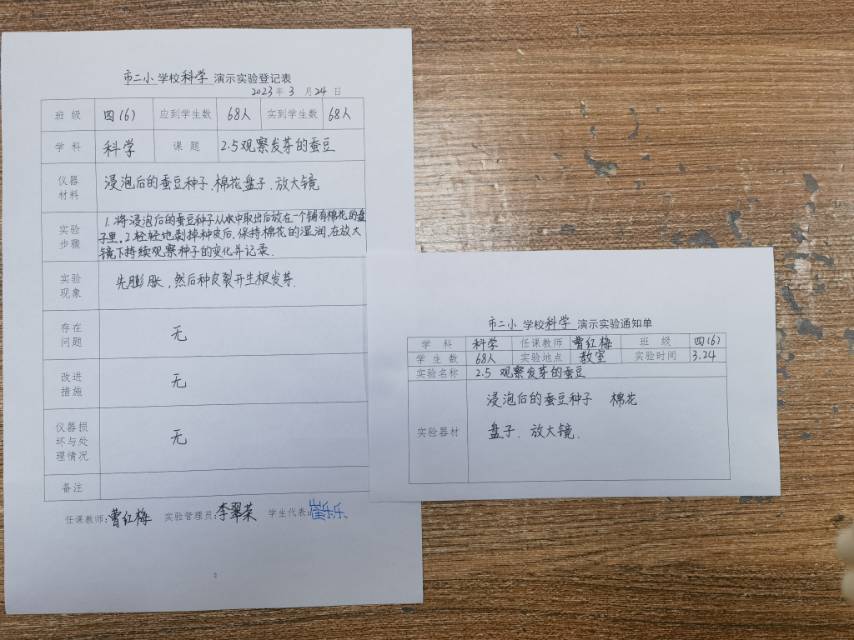 市二小学校科学演示实验登记表
2023年3月24日
班级 四(6) 应到学生数 68人 实到学生数 68人
学科 科学 课题 2.5观察发芽的蚕豆
仪器材料 浸泡后的蚕豆种子、棉花盘子、放大镜
实验步骤 1.将浸泡后的蚕豆种子从水中取出后放在一个铺有棉花的盘
子里。2.轻轻地剥掉种皮后,保持棉花的湿润,在放大
镜下持续观察种子的变化并记录.
实验现象 先膨胀,然后种皮裂开生根发芽.
存在问题 无
改进措施 无
仪器损坏与处理情况 无
备注
任课教师:曹红梅 实验管理员:李翠荣 学生代表:崔乐乐
市二小学校科学演示实验通知单
学科 科学 任课教师 曹红梅 班级 四(6)
学生数 68人 实验地点 教室 实验时间 3.24
实验名称 2.5 观察发芽的蚕豆
实验器材 浸泡后的蚕豆种子 棉花
盘子、放大镜.